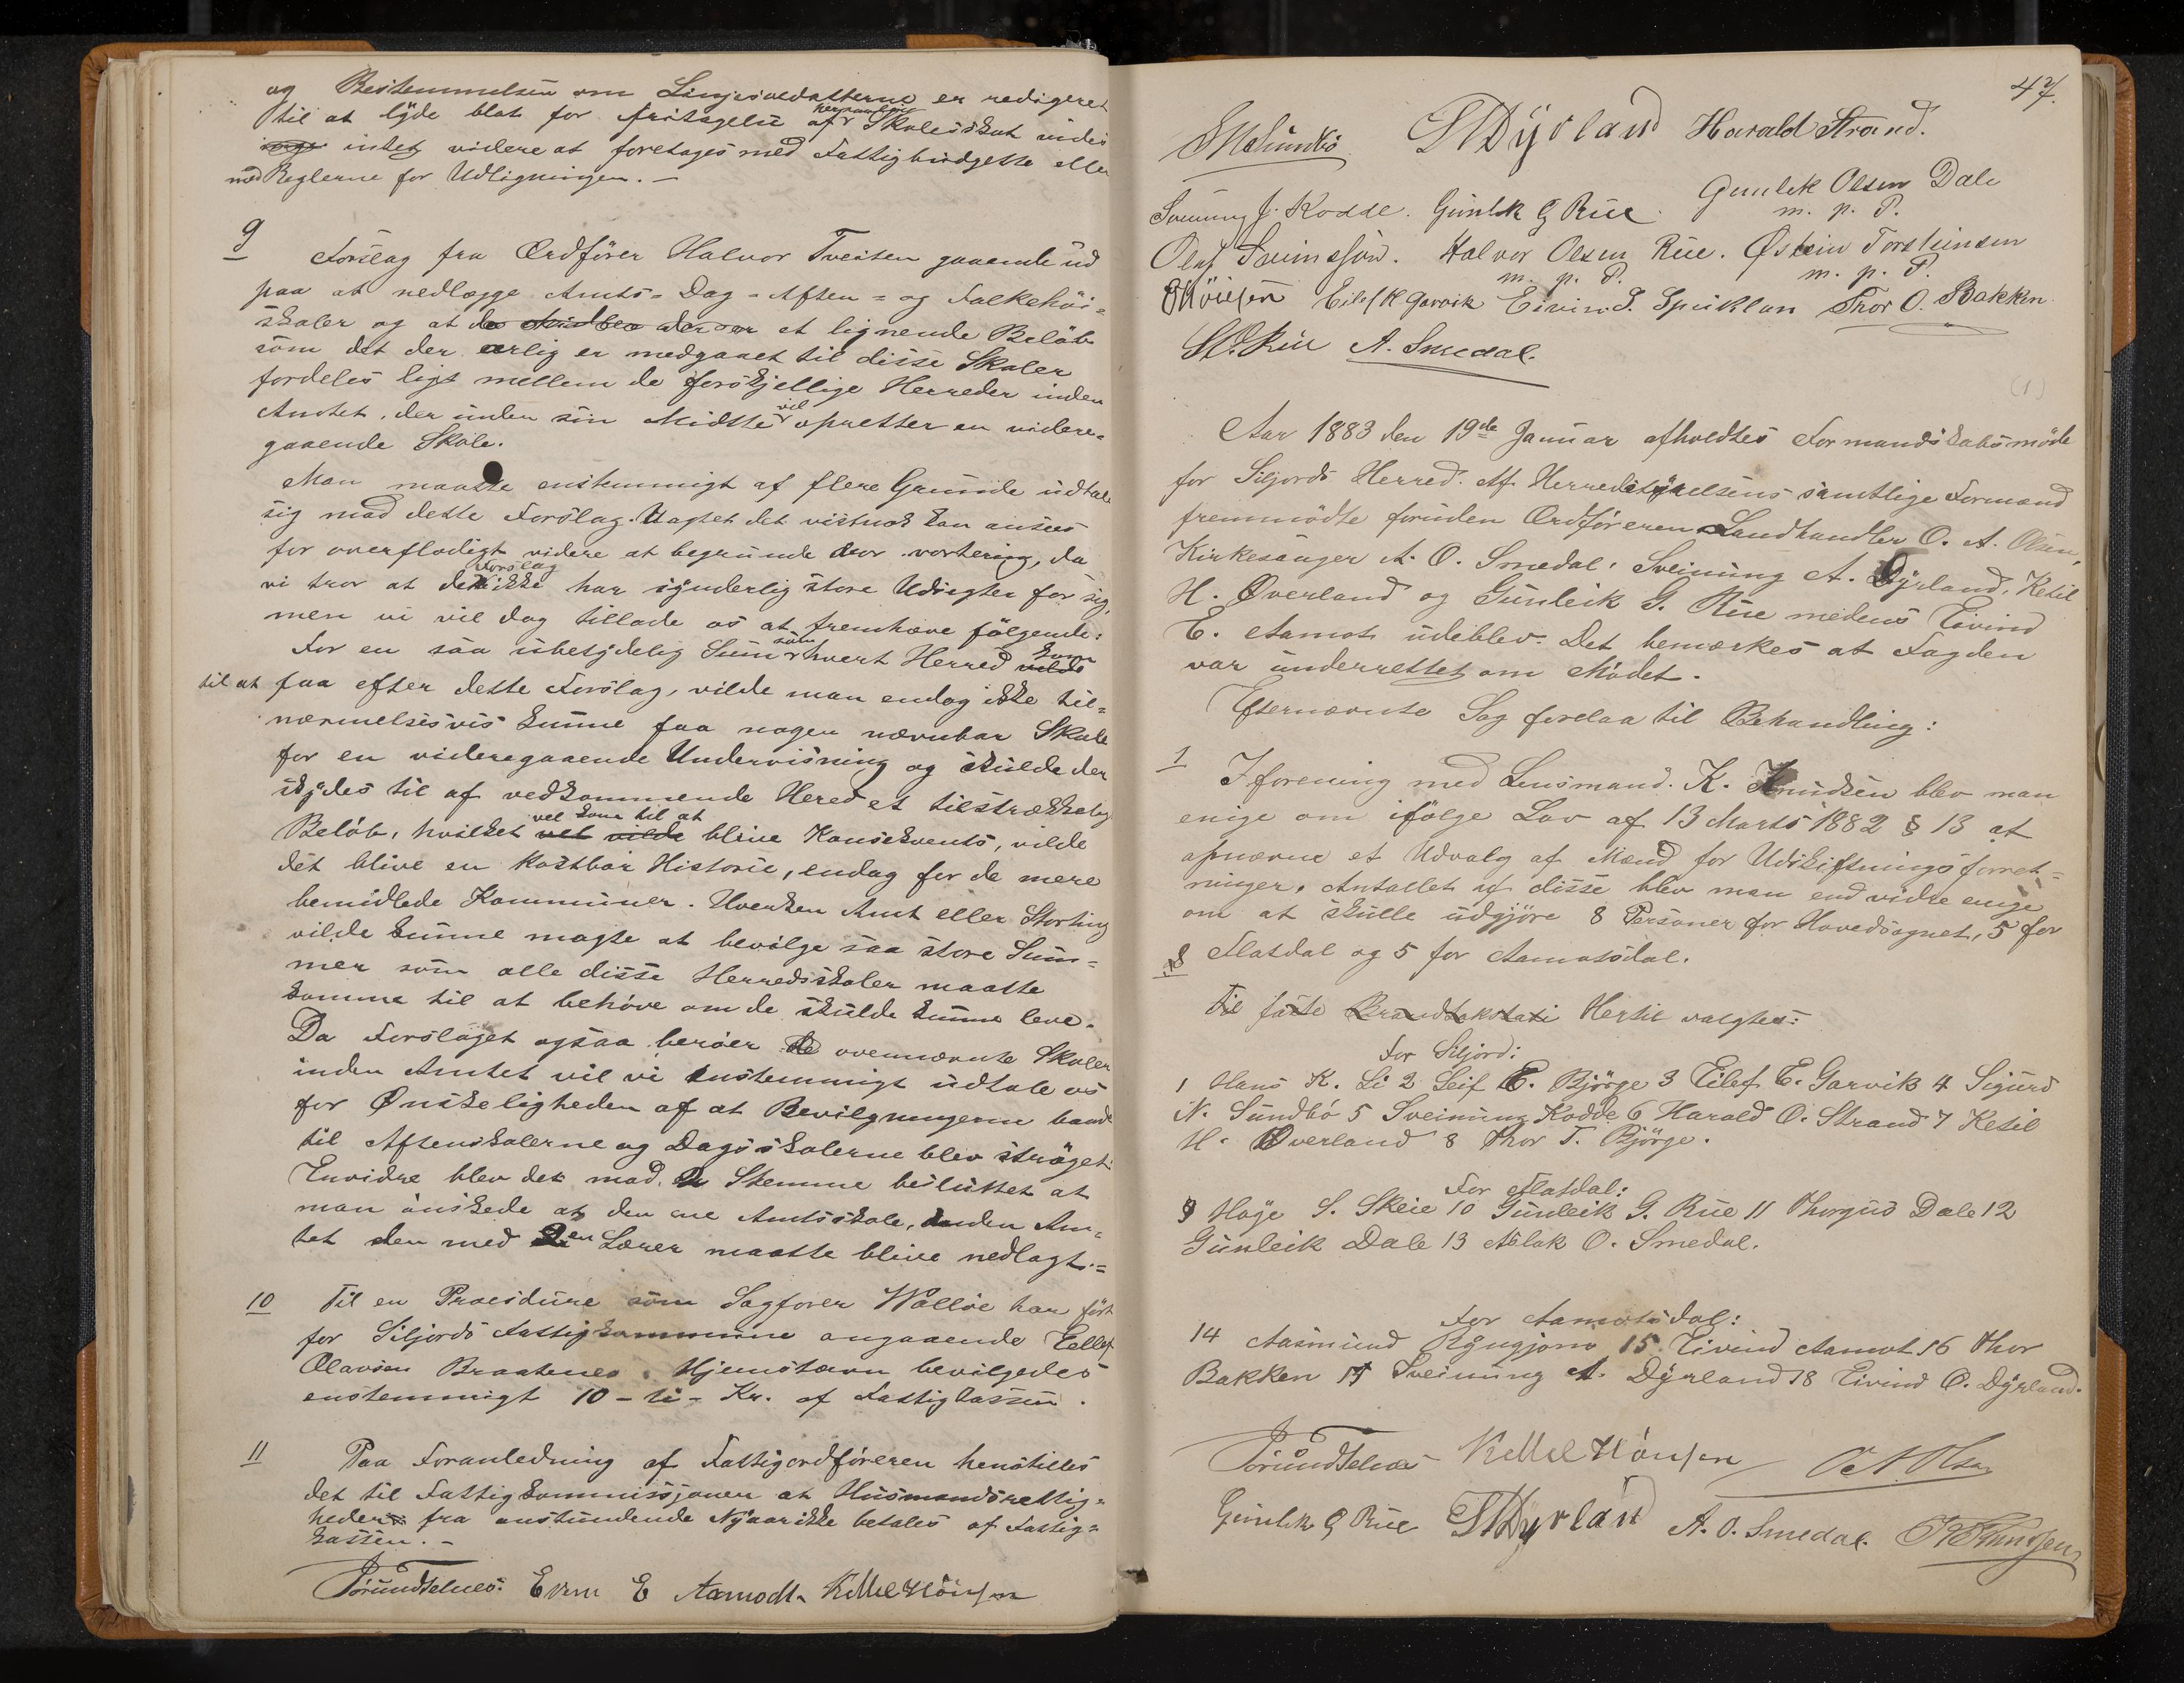 og Bestemmelsen om Linjesoldatterne er redigeret
til at lyde blot for fritagelse af Skoleskat indes
intet videre at foretages med Fattigbudgette eller
med Reglerne for Udligningen. –
9
Forslag fra Ordfører Halvor Tveiten gaaende ud
paa at nedlægge Amts- Dag- Aften- og Folkehøi=
skoler og at et lignende Beløb
som det der aarlig er medgaaet til disse Skoler
fordeles ligt mellem de forskjellige Herreder inden
Amtet, der inden sin Midtte vil opretter en videre=
gaaende Skole.
Man maatte enstemmigt af flere Grunde udtale
sig mod dette Forslag. Uagtet det vistnok kan ansees
for overflødigt videre at begrunde vor vortering, da
vi tror at det Forslag ikke har synderlig store Udsigter for sig,
men vi vil dog tillade os at fremhæve følgende:
For en saa ubetydelig Sum som hvert Herred kom
til at faa efter dette Forslag, vilde man endog ikke til=
nærmelsesvis kunne faa nogen nævnbar Skole
for en videregaaende Undervisning og skulde der
skydes til af vedkommende Hered et tilstrækkelig
Beløb, hvilket vel kom til at blive Konsekvents, vilde
det blive en kostbar Historie, endog for de mere
bemidlede Kommuner. Hverken Amt eller Storting
vilde kunne magte at bevilge saa store Sum=
mer som alle disse Herredsskoler maatte
komme til at behøve om de skulde kunne leve.
Da Forslaget ogsaa berører de ovennævnte Skoler
inden Amtet vil vi enstemmigt udtale os
for Ønskeligheden af at Bevilgningerne baade
til Aftenskolerne og Dagsskolerne blev strøget.
Envidre blev det mod Stemme besluttet at
man ønskede at den ene Amtsskole, inden Am=
tet den med 2en Lærer maatte blive nedlagt.=
10 Til en Procedure som Sagfører Walløe har ført
for Siljords Fattigkommune angaaende Eellef
Olavsen Braatenes Hjemstavn bevilgedes
enstemmigt 10 – ti – Kr. af Fattigkassen.
11 Paa Foranledning af Fattigordføreren henstilles
det til Fattigkommissjonen at Husmandsrettig=
heder fra anstundende Nyaar ikke betales af Fattig=
kassen. –
Jörund Telnes. Evin E Aamodt. Kittel Hönsen
47.
S N Sundbö S A Dyrland Harald Strand.
Sveinung J. Kodde. Gunlek G Rue. Gunlek Olsen Dale
m. p. P.
Olaf Sveinssön. Halvor Olsen Rue. Østein Torsteinsen
m. p. P. m. p. P.
Eilef K Garvik Eivin S. Speiklan Thor O. Bakken
S. O. Rue A. Smedal.
(1)
Aar 1883 den 19de Januar afholdtes Formandskabsmøde
for Siljords Herred. Af Herredstyrelsens samtlige Formænd
fremmødte foruden Ordføreren Landhandler O. A. Olsen,
Kirkesanger A. O. Smedal, Sveinung A. Dyrland, Ketil
H. Øverland og Gunleik G. Rue medens Eivind
E. Aamot udeblev. Det bemærkes at Fogden
var underrettet om Mødet.
Efternævnte Sag forelaa til Behandling:
1 I forening med Lensmand. K. Knudsen blev man
enige om ifølge Lov af 13 Marts 1882 § 13 at
opnævne et Udvalg af Mænd for Udskiftningsforret=
ninger. Antallet af disse blev man endvidre enige
om at skulle udgjøre 8 Personer for Hovedsognet, 5 for
Flatdal og 5 for Aamotsdal.
Til faste Brandtakstati Hertil valgtes:
For Siljord:
1 Hans K. Li 2 Leif E. Björge 3 Eilef E. Garvik 4 Sigurd
N. Sundbö 5 Sveinung Kodde 6 Harald O. Strand 7 Ketil
H. Överland 8 Thor T. Björge.
For Flatdal:
9 Høje S. Skeie 10 Gunleik G. Rue 11 Thorgus Dale 12
Gunleik Dale 13 Aslak O. Smedal.
For Aamotsdal:
14 Aasmund 15 Eivind Aamot 16 Thor
Bakken 17 Sveinung A. Dyrland 18 Eivind O. Dyrland.
Jörund Telnes Kittel Hönsen O A Olsen
Gunlek G Rue S A Dyrland A. O. Smedal. K Knudsen